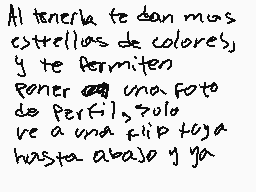 Al tenerla te dan mas
estrellas de colores,
y te permiten
poner una foto
de perfil, solo
ve a una flip tuya
hasta abajo y ya